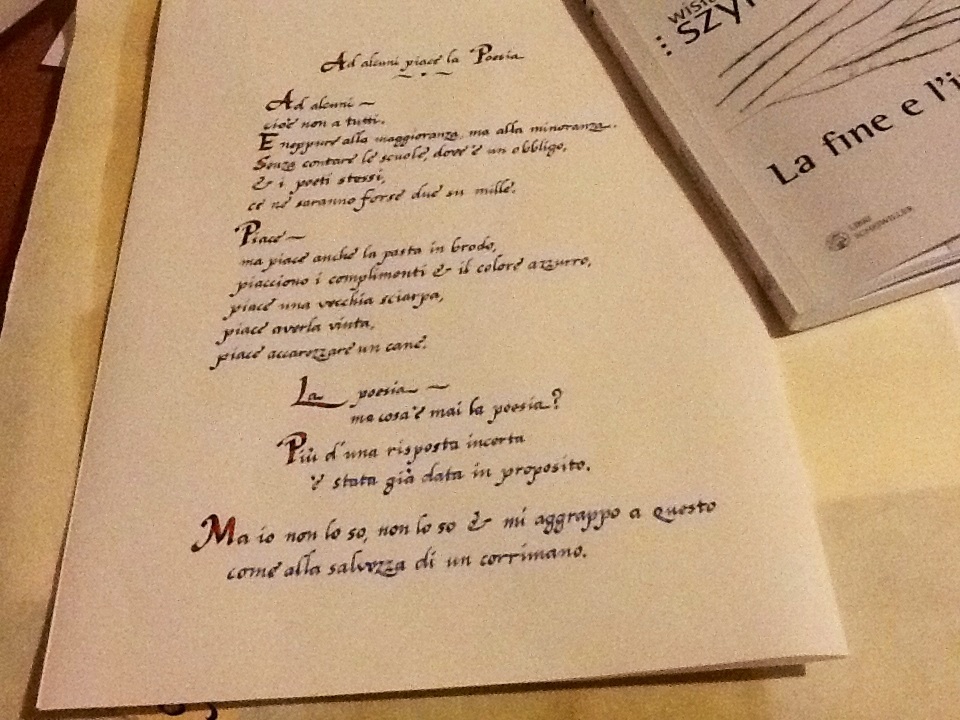 Ad alcuni piace la Poesia
Ad alcuni ~
cioè non a tutti.
E neppure alla maggioranza, ma alla minoranza.
Senza contare le scuole, dove è un obbligo,
& i poeti stessi,
ce ne saranno forse due su mille.
Piace ~
ma piace anche la pasta in brodo,
piacciono i complimenti & il colore azzurro,
piace una vecchia sciarpa,
piace averla vinta,
piace accarezzare un cane.
La poesia ~
ma cos'è mai la poesia?
Più d'una risposta incerta
è stata già data in proposito.
Ma io non lo so, non lo so & mi aggrappo a questo
come alla salvezza di un corrimano.
La fine e l'i
LIBRI
SCHEIWILLER